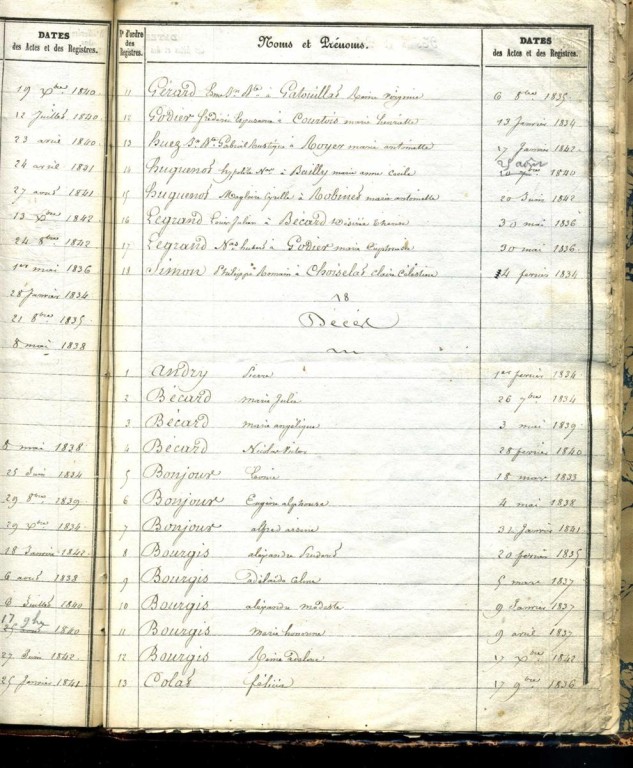 DATES
des Actes et des Registres.
19 Xbre 1840
12 Juillet 1840
23 avril 1840
24 avril 1841
27 aout 1841
13 Xbre 1842
24 8bre 1842
1er mai 1836
28 Janvier 1834
21 8bre 1835
8 mai 1838
8 mai 1838
25 Juin 1834
29 8bre 1839
29 Xbre 1834
18 Janvier 1841
6 avril 1838
9 Juillet 1840
17 9bre
1840
27 Juin 1842
25 Janvier 1841
N° d'ordre des Registres. Noms et Prénoms. DATES des Actes et des Registres.
11 Gérard à Gatouillat Marie Virginie 6 8bre 1835
12 Godier à Courtois marie henriette 13 Janvier 1834
13 Huez à Royer marie antoinette 27 Janvier 1842
14 Huguenot hypolite à Bailly marie anne 1840
15 Huguenot à Robinet marie antoinette 20 Juin 1842
16 Legrand Louis Julien à Bécard Désirée 30 mai 1836
17 Legrand à Godier marie 30 mai 1836
18 Simon Philippe Romain à Choiselat Claire Célestine 4 fevrier 1834
18
Décès
1 Andry Pierre 1er fevrier 1834
2 Bécard marie Julie 26 7bre 1834
3 Bécard marie angélique 3 mai 1839
4 Bécard Nicolas Victor 28 fevrier 1840
5 Bonjour 18 mars 1833
6 Bonjour Eugène alphonse 4 mai 1838
7 Bonjour 31 Janvier 1841
8 Bourgis alexandre 20 fevrier 1835
9 Bourgis adélaïde 5 mars 1837
10 Bourgis alexandre modeste 9 Janvier 1837
11 Bourgis marie honorine 9 avril 1837
12 Bourgis 17 Xbre 1842
13 Colas 17 9bre 1836